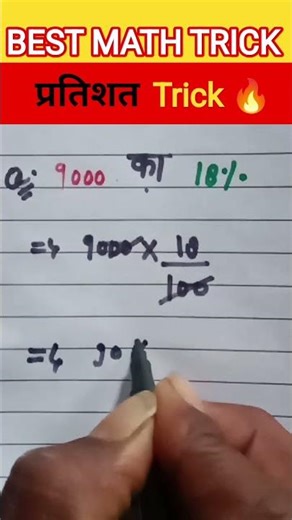 BEST MATH TRICK
प्रतिशत Trick 🔥
Q: 9000 का 18%
⇒ 9000 × 18/100
⇒ 90